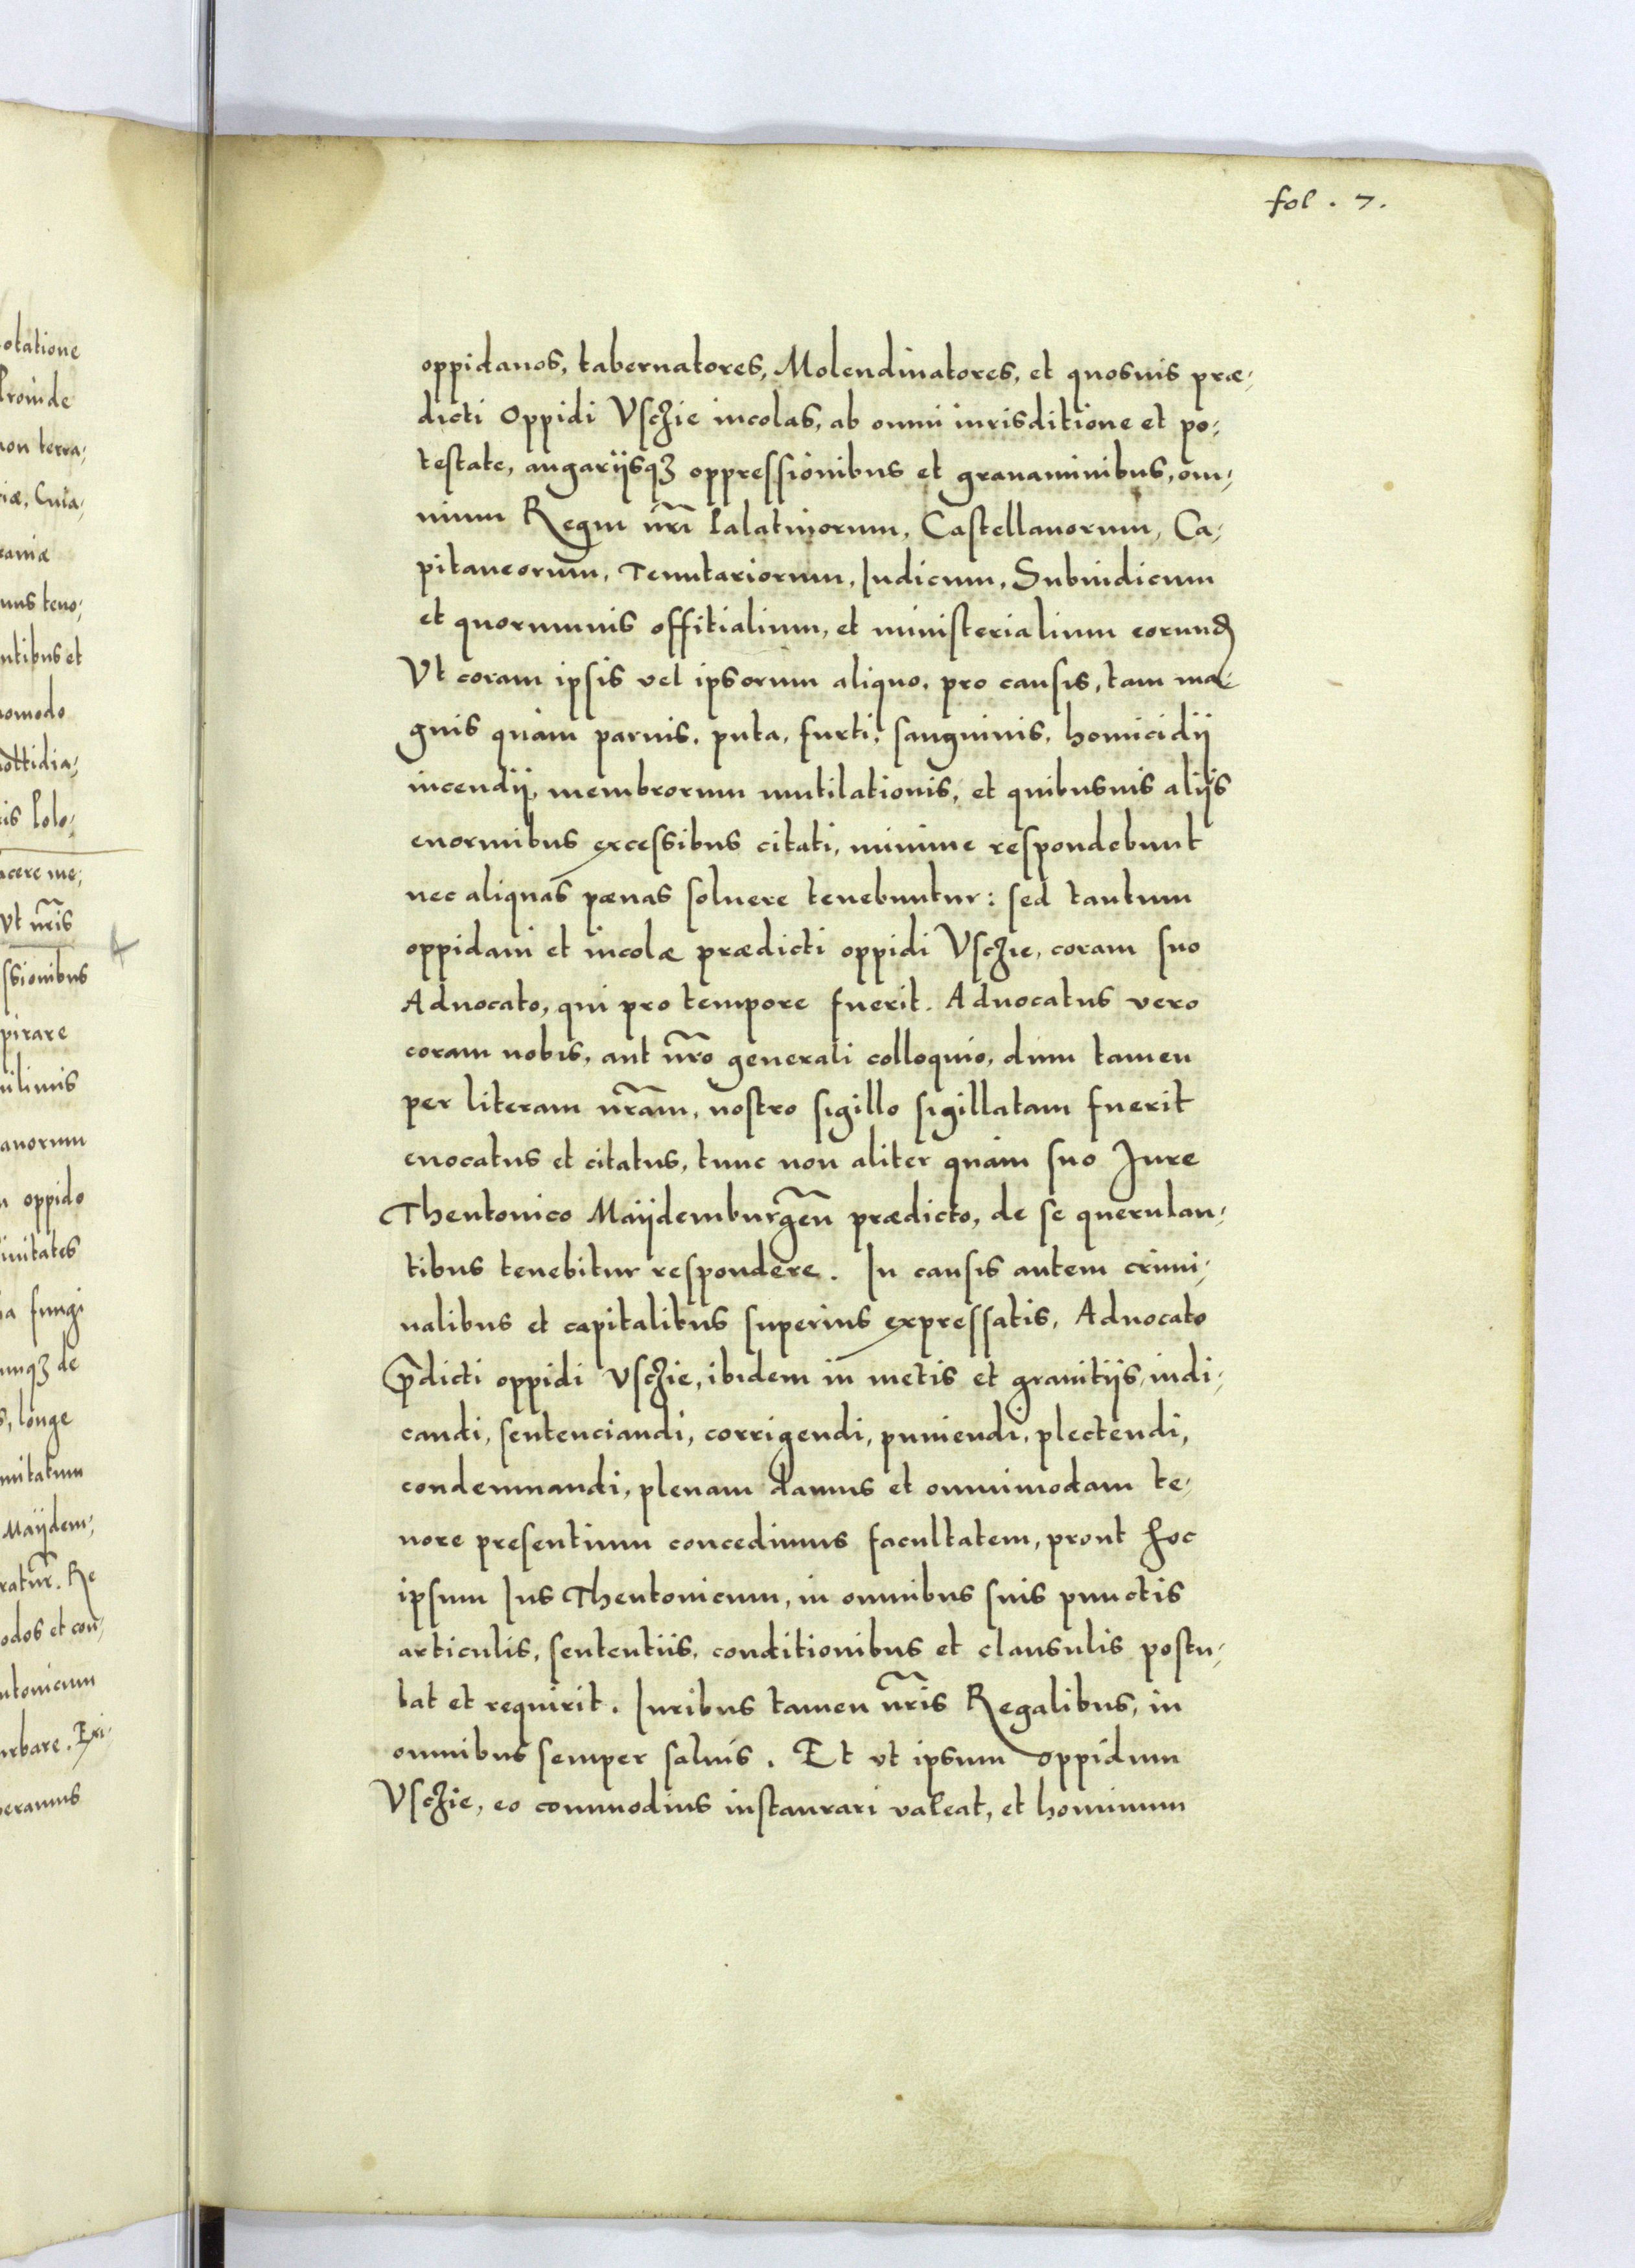 fol. 7.
oppidanos, tabernatores, Molendinatores, et quosuis præ-
dicti Oppidi Vschie incolas, ab omni iurisditione et po-
testate, angarijsqȝ oppressionibus et grauaminibus, om-
nium Regni nr̃i Palatinorum, Castellanorum, Ca-
pitaneorum, Tenutariorum, Iudicum, Subiudicum
et quorumuis offitialium, et ministerialium eorund̃
Vt coram ipsis vel ipsorum aliquo, pro causis, tam ma-
gnis quàm paruis, puta, furti, sanguinis, homicidij
incendij, membrorum mutilationis, et quibusuis alijs
enormibus excessibus citati, minime respondebunt
nec aliquas pænas soluere tenebuntur: sed tantum
oppidani et incolæ prædicti oppidi Vschie, coram suo
Aduocato, qui pro tempore fuerit. Aduocatus vero
coram nobis, aut nr̃o generali colloquio, dum tamen
per literam nr̃am, nostro sigillo sigillatam fuerit
euocatus et citatus, tunc non aliter quàm suo Iure
Theutonico Maÿdemburgeñ prædicto, de se querulan-
tibus tenebitur respondere. In causis autem crimi-
nalibus et capitalibus superius expressatis, Aduocato
p̃dicti oppidi Vschie, ibidem in metis et granitijs, iudi-
candi, sentenciandi, corrigendi, puniendi, plectendi,
condemnandi, plenam damus et omnimodam te-
nore presentium concedimus facultatem, prout hoc
ipsum Ius Theutonicum, in omnibus suis punctis
articulis, sententiis, conditionibus et clausulis postu-
lat et requirit. Iuribus tamen nr̃is Regalibus, in
omnibus semper saluis. Et vt ipsum oppidum
Vschie, eo commodius instaurari valeat, et hominum